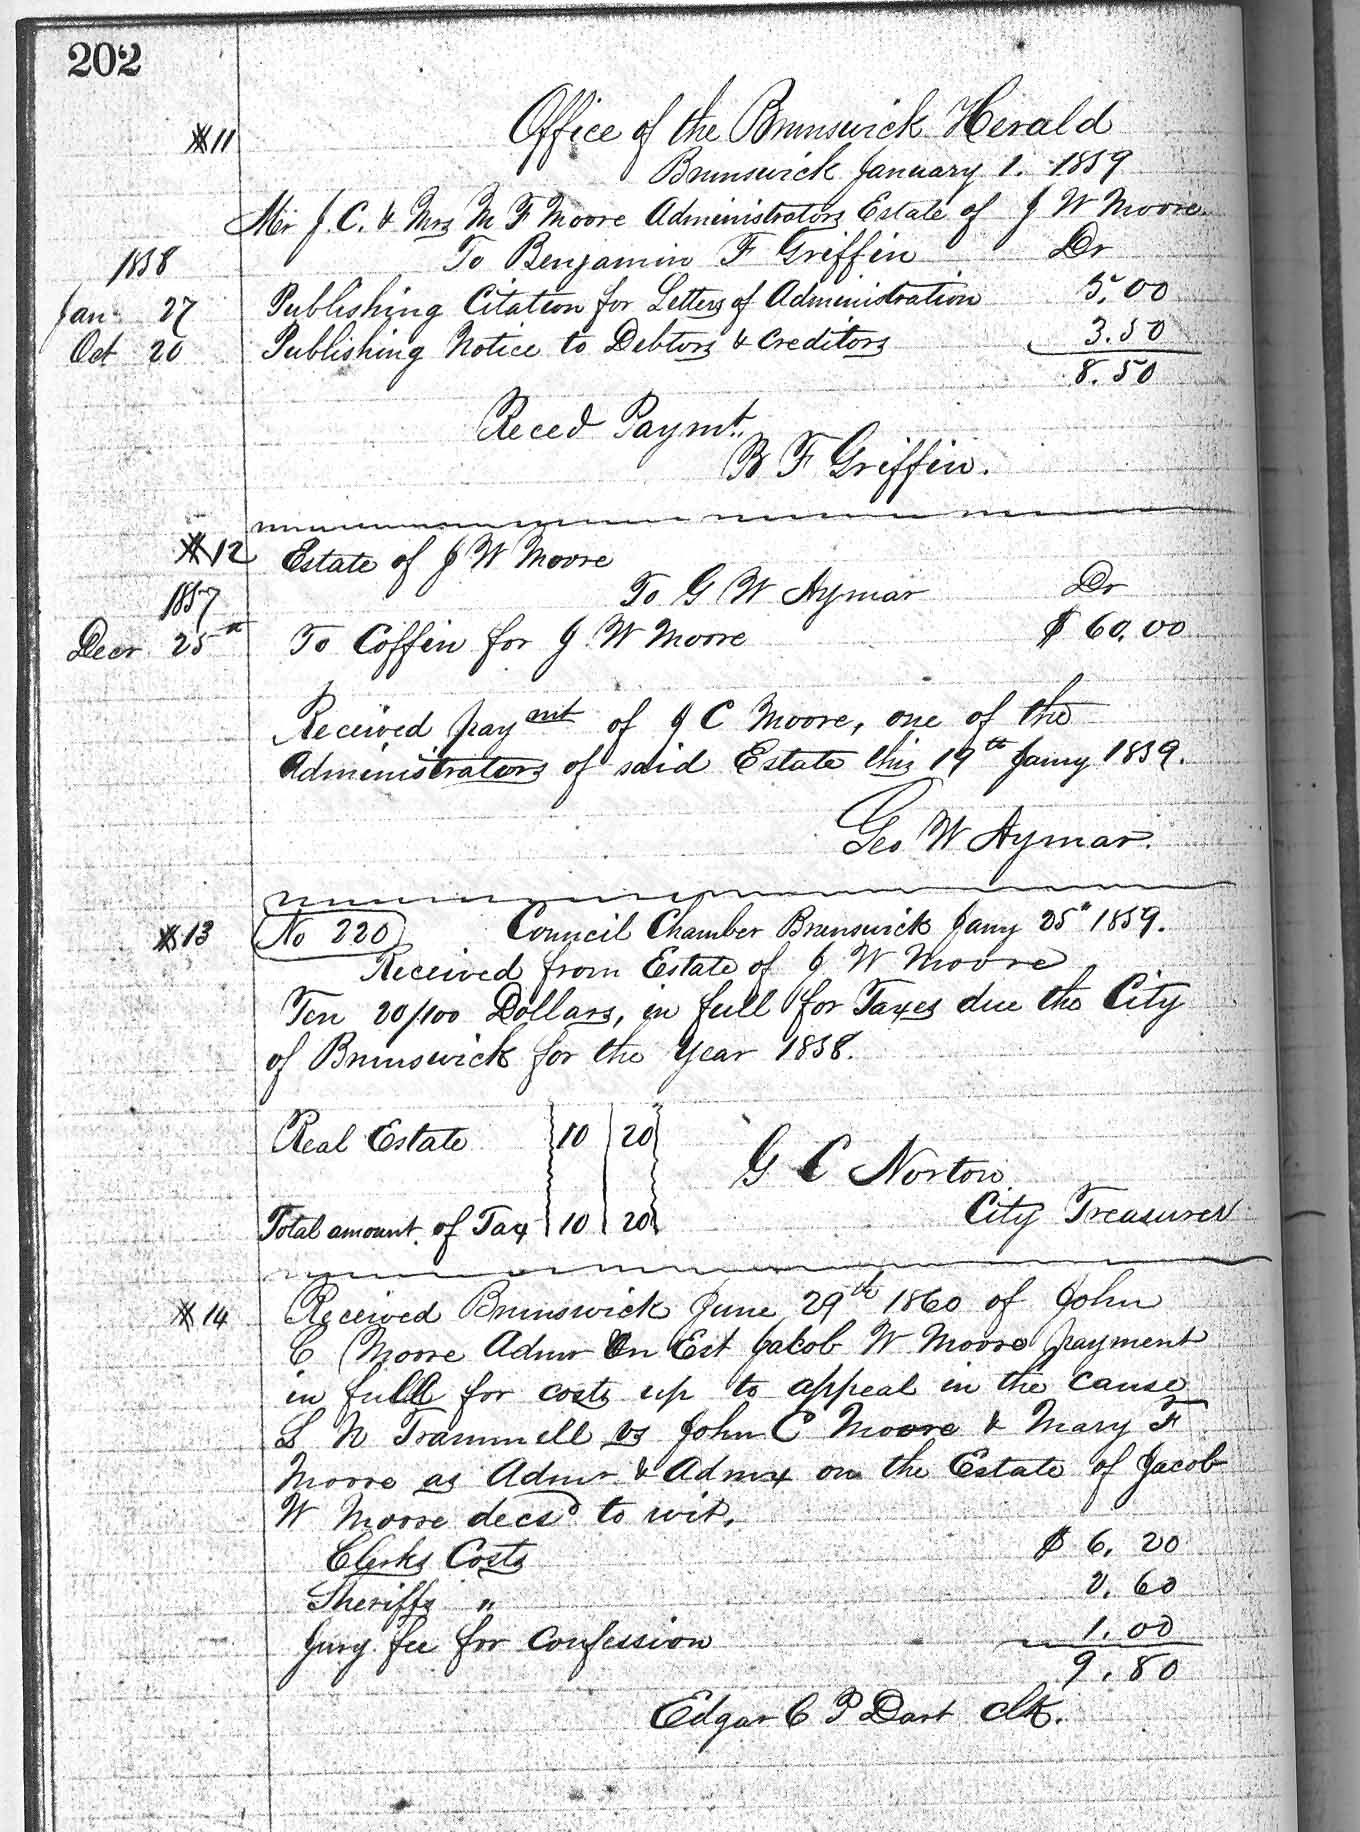 202
#11 Office of the Brunswick Herald
Brunswick January 1. 1859
Mr J. C. & Mrs M F Moore Administrators Estate of J W Moore
1858 To Benjamin F Griffin Dr
Jan 27 Publishing Citation for Letters of Administration 5.00
Oct 20 Publishing Notice to Debtors & Creditors 3.50
8.50
Reced Paymt.
B F Griffin.
#12 Estate of J W Moore
1857 To G W Aymar Dr
Decr 25th To Coffin for J. W Moore $ 60.00
Received paymt of J C Moore, one of the
Administrators of said Estate this 19th Jany 1859.
Geo W Aymar.
#13 No 220 Council Chamber Brunswick Jany 25th 1859.
Received from Estate of J W Moore
Ten 20/100 Dollars, in full for Taxes due the City
of Brunswick for the Year 1858.
Real Estate 10 20
G C Norton
City Treasurer
Total amount of Tax 10 20
#14 Received Brunswick June 29th 1860 of John
C Moore Admr on Est Jacob W Moore payment
in full for costs up to appeal in the cause
L N Trammell vs John C Moore & Mary F
Moore as Admr & Admx on the Estate of Jacob
W Moore decsd to wit.
Clerks Costs $ 6. 20
Sheriffs " 2. 60
Jury fee for Confession 1. 00
9. 80
Edgar C P Dart Clk.